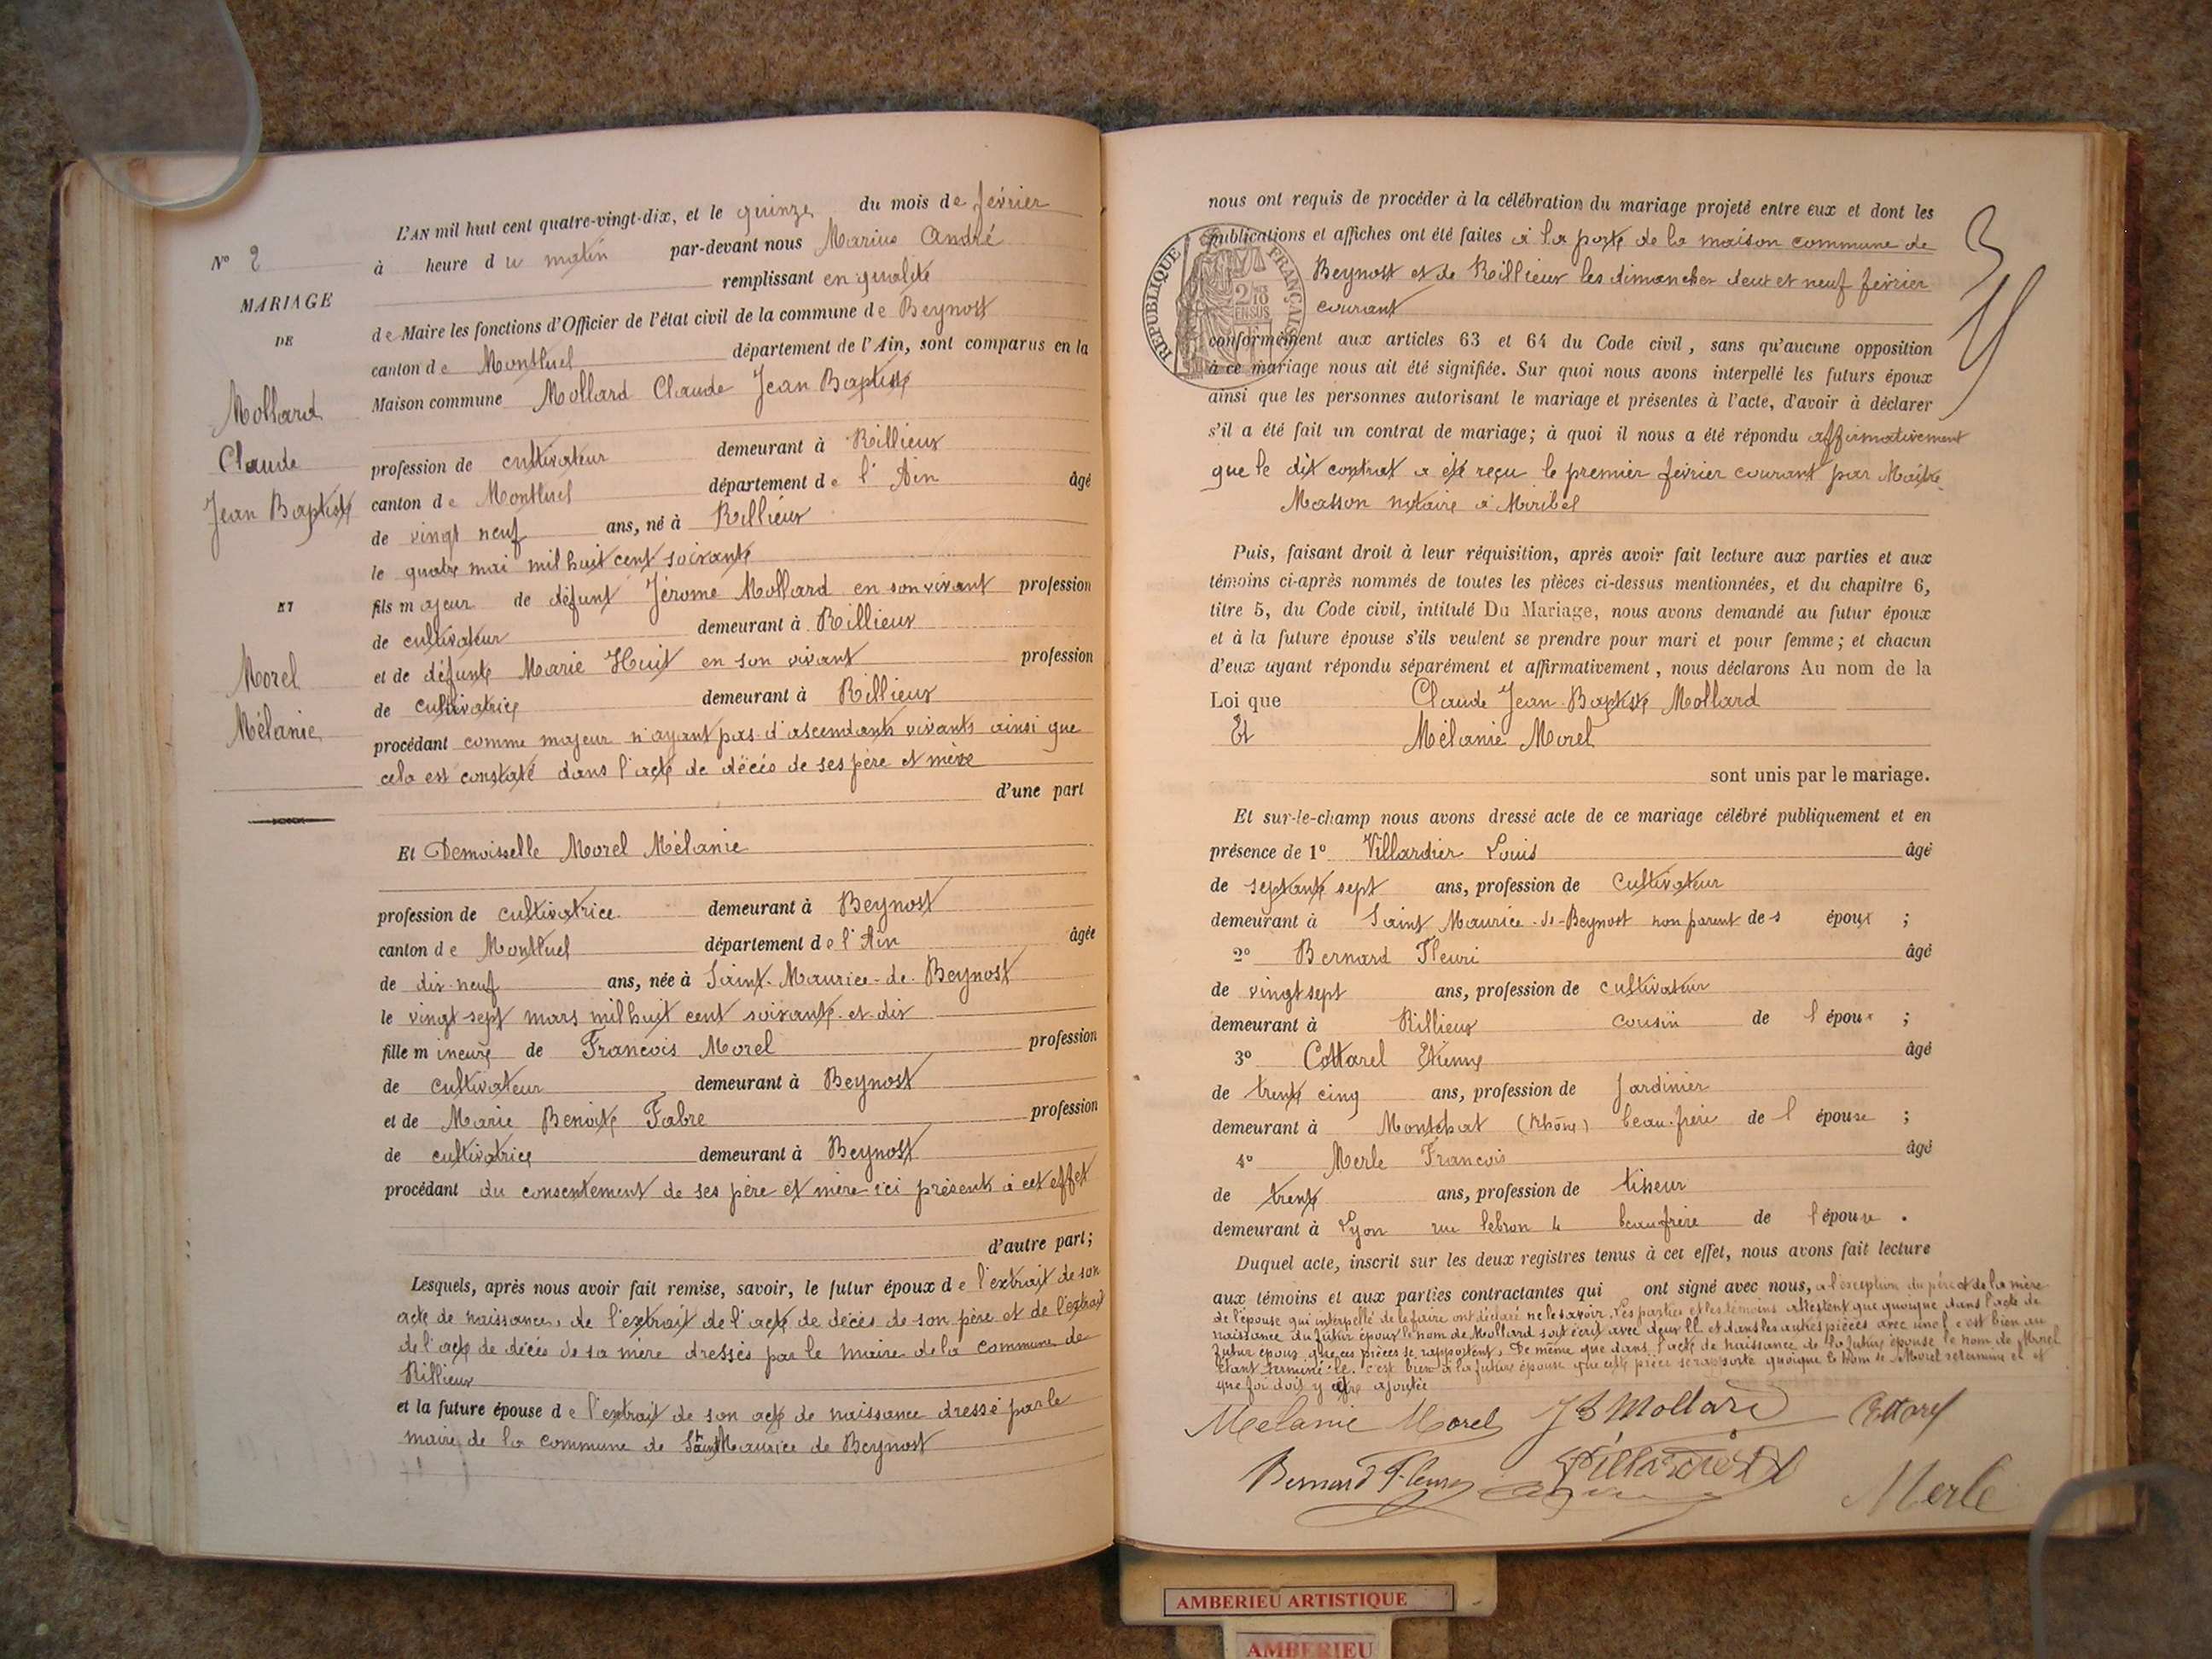 L'AN mil huit cent quatre-vingt-dix, et le quinze du mois de février
à heure du matin par-devant nous Marius André
remplissant en qualité
de Maire les fonctions d'Officier de l'état civil de la commune de Beynost
canton de Montluel département de l'Ain, sont comparus en la
Maison commune Mollard Claude Jean Baptiste
profession de cultivateur demeurant à Rillieux
canton de Montluel département de l'Ain âgé
de vingt neuf ans, né à Rillieux
le quatre mai mil huit cent soixante
fils majeur de défunt Jérome Mollard en son vivant profession
de cultivateur demeurant à Rillieux
et de défunte Marie Huit en son vivant profession
de cultivatrice demeurant à Rillieux
procédant comme majeur n'ayant pas d'ascendants vivants ainsi que
cela est constaté dans l'acte de décès de ses père et mère
d'une part
Nº 2
MARIAGE
DE
Mollard
Claude
Jean Baptiste
ET
Morel
Mélanie
Et Demoisselle Morel Mélanie
profession de cultivatrice demeurant à Beynost
canton de Montluel département de l'Ain âgée
de dix-neuf ans, née à Saint-Maurice-de-Beynost
le vingt-sept mars mil huit cent soixante-et-dix
fille mineure de Francois Morel profession
de cultivateur demeurant à Beynost
et de Marie Benoite Fabre profession
de cultivatrice demeurant à Beynost
procédant du consentement de ses père et mère ici présents à cet effet
d'autre part;
Lesquels, après nous avoir fait remise, savoir, le futur époux de l'extrait de son
acte de naissance, de l'extrait de l'acte de décès de son père et de l'extrait
de l'acte de décès de sa mère dressés par le maire de la commune de
Rillieux
et la future épouse de l'extrait de son acte de naissance dressé par le
maire de la commune de Saint Maurice de Beynost
nous ont requis de procéder à la célébration du mariage projeté entre eux et dont les
publications et affiches ont été faites à la porte de la maison commune de
Beynost et de Rillieux les dimanches deux et neuf février
courant
RÉPUBLIQUE FRANÇAISE
conformément aux articles 63 et 64 du Code civil, sans qu'aucune opposition
à ce mariage nous ait été signifiée. Sur quoi nous avons interpellé les futurs époux
ainsi que les personnes autorisant le mariage et présentes à l'acte, d'avoir à déclarer
s'il a été fait un contrat de mariage; à quoi il nous a été répondu affirmativement
que le dit contrat a été reçu le premier février courant par Maître
Masson notaire à Miribel
Puis, faisant droit à leur réquisition, après avoir fait lecture aux parties et aux
témoins ci-après nommés de toutes les pièces ci-dessus mentionnées, et du chapitre 6,
titre 5, du Code civil, intitulé Du Mariage, nous avons demandé au futur époux
et à la future épouse s'ils veulent se prendre pour mari et pour femme; et chacun
d'eux ayant répondu séparément et affirmativement, nous déclarons Au nom de la
Loi que Claude Jean-Baptiste Mollard
Et Mélanie Morel
sont unis par le mariage.
Et sur-le-champ nous avons dressé acte de ce mariage célébré publiquement et en
présence de 1º Villardier Louis âgé
de septante sept ans, profession de Cultivateur
demeurant à Saint Maurice-de-Beynost non parent des époux ;
2º Bernard Fleuri âgé
de vingt sept ans, profession de cultivateur
demeurant à Rillieux cousin de l'époux ;
3º Cottarel Etienne âgé
de trente cinq ans, profession de Jardinier
demeurant à Montchat (Rhône) beau-frère de l'épouse ;
4º Merle Francois âgé
de trente ans, profession de tisseur
demeurant à Lyon rue lebrun 4 beaufrère de l'épouse .
Duquel acte, inscrit sur les deux registres tenus à cet effet, nous avons fait lecture
aux témoins et aux parties contractantes qui ont signé avec nous, à l'exception du père et de la mère
de l'épouse qui interpellé de le faire ont déclaré ne le savoir. Les parties et les témoins attestent que quoique dans l'acte de
naissance du futur époux le nom de Mollard soit écrit avec deux ll et dans les autres pièces avec une l c'est bien au
futur époux que ces pièces se rapportent, De même que dans l'acte de naissance de la future épouse le nom de Morel
étant terminé le. c'est bien à la future épouse que cette pièce se rapporte quoique le nom de Morel se termine el et
que foi doit y être ajoutée
Mélanie Morel JB Mollard Cottarel
Bernard Fleury Villardier Merle
AMBERIEU ARTISTIQUE
AMBERIEU